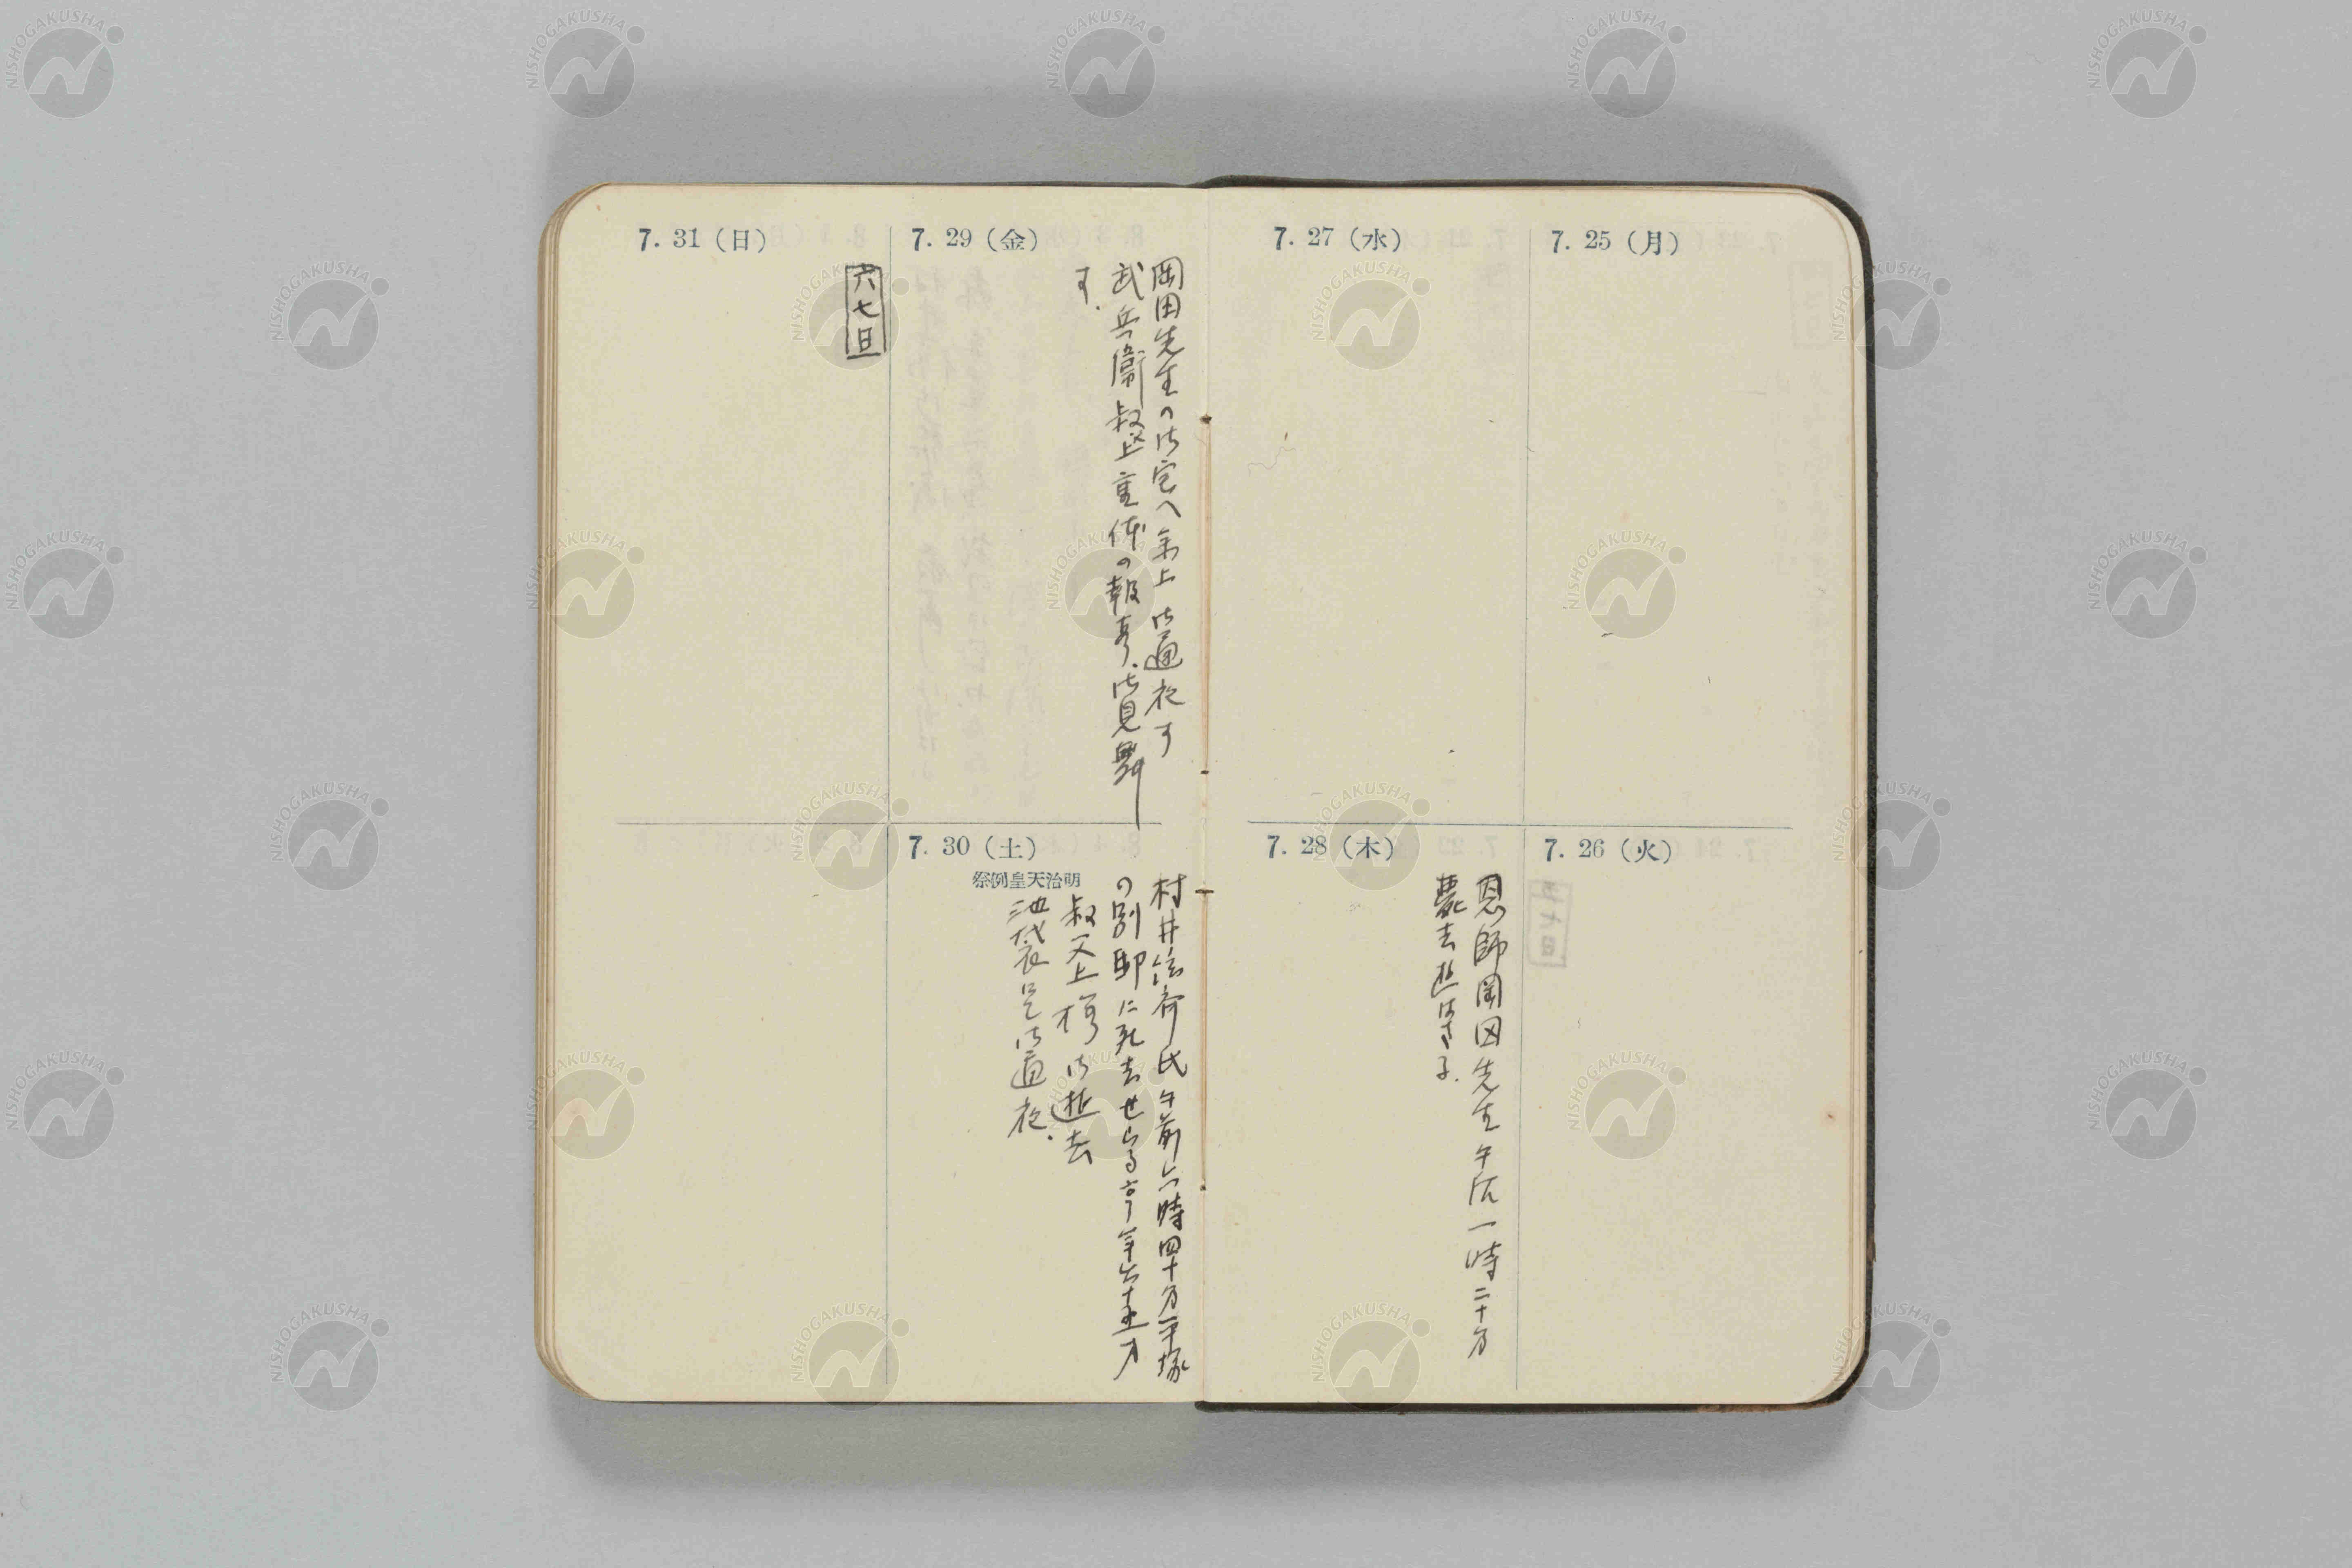 7. 25 (月)
7. 26 (火)
7. 27 (水)
7. 28 (木)
恩師岡田先生午后一時二十分
薨去遊ばさる.
7. 29 (金)
岡田先生の御宅へ参上御通夜す
武兵衛叔父上重体の報享.御見舞
す.
7. 30 (土)
明治天皇例祭
村井 氏午前六時四十分平塚
の別邸に死去せらる享年六十五才
叔父上様御逝去
池袋 御通夜.
7. 31 (日)
六七日
NISHOGAKUSHA